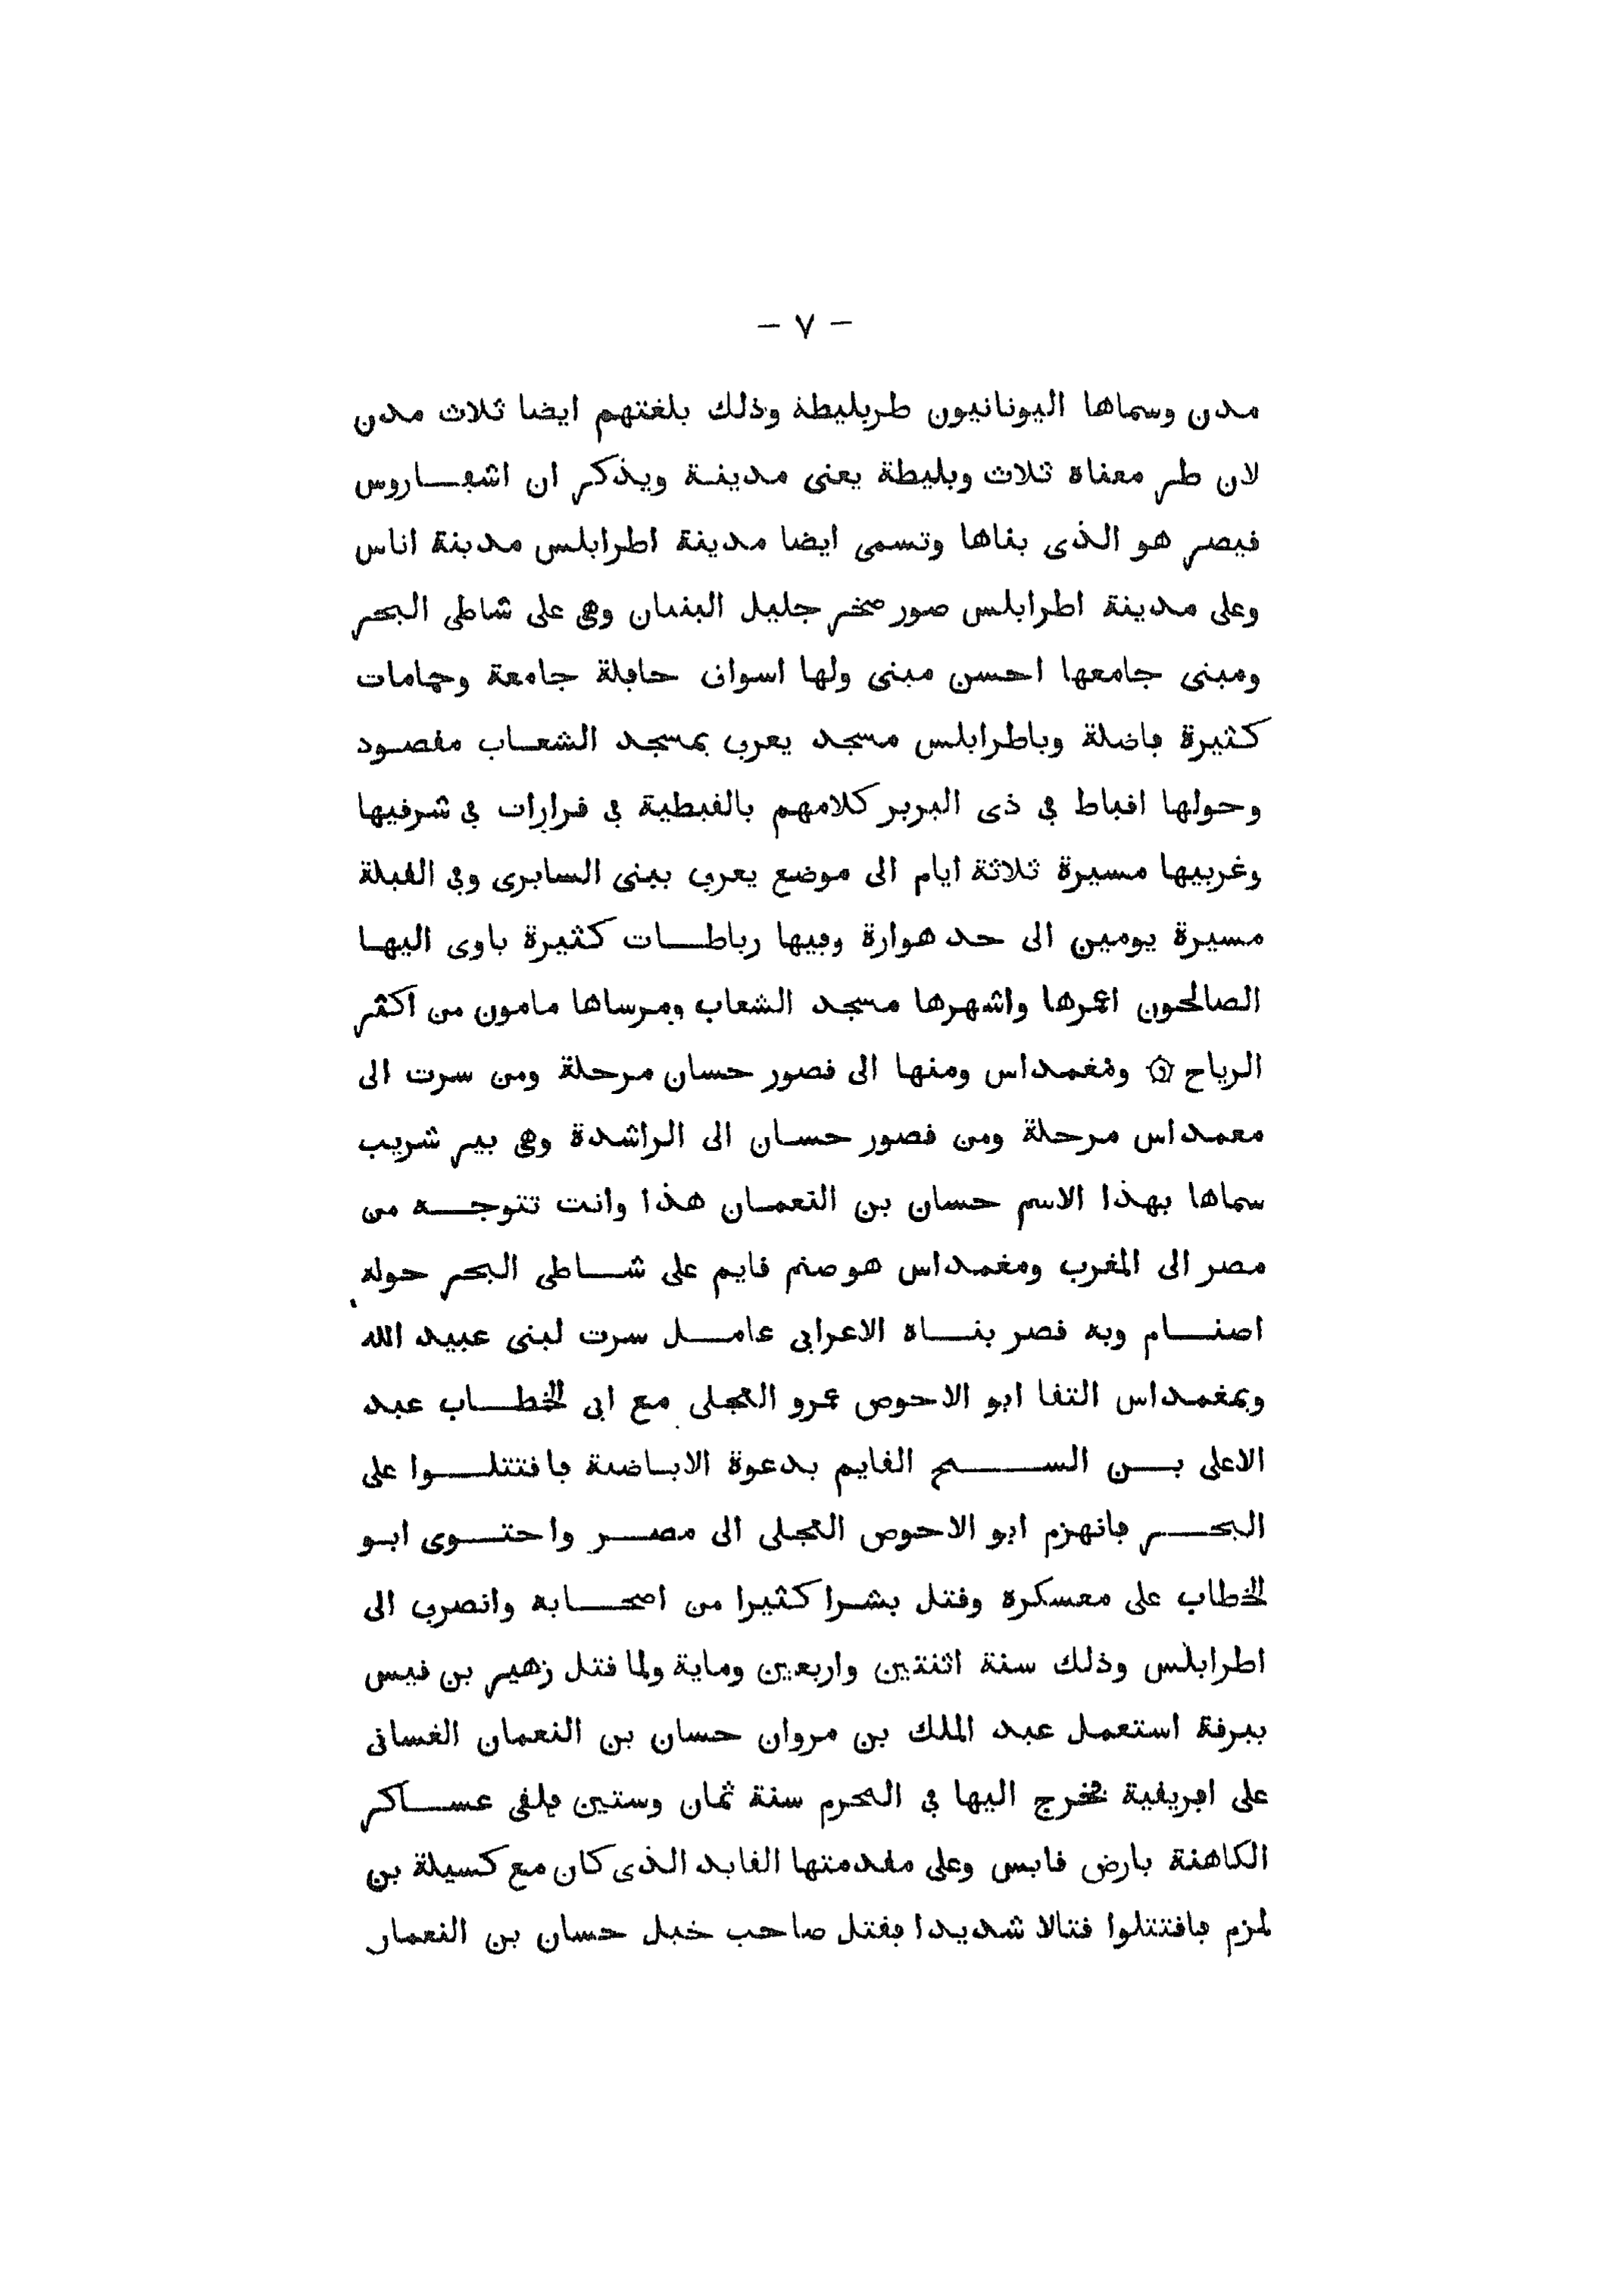 — ٧ —
مدن وسماها اليونانيون طربليطة وذلك بلغتهم ايضا ثلاث مدن
لان طر معناه ثلاث وبليطة يعنى مدينة ويذكر ان اشڢاروس
فيصر هو الذى بناها وتسمى ايضا مدينة اطرابلس مدينة اناس
وعلى مدينة اطرابلس صور صخر جليل البنيان وهى على شاطى البحر
ومبنى جامعها احسن مبنى ولها اسواف حاڢلة جامعة وحمامات
كثيرة ڢاضلة وباطرابلس مسجد يعرڢ بمسجد الشعاب مفصود
وحولها افباط ڢى ذى البربر كلامهم بالفبطية ڢى فرارات ڢى شرفيها
وغربيها مسيرة ثلاثة ايام الى موضع يعرڢ ببنى السابرى وڢى الفبلة
مسيرة يومين الى حد هوارة وڢيها رباطات كثيرة ياوى اليها
الصالحون اعمرها واشهرها مسجد الشعاب ومرساها مامون من اكثر
الرياح ۞ ومغمداس ومنها الى فصور حسان مرحلة ومن سرت الى
معمداس مرحلة ومن فصور حسان الى الراشدة وهى بير شريب
سماها بهذا الاسم حسان بن النعمان هذا وانت تتوجه من
مصر الى المغرب ومغمداس هو صنم فايم على شاطى البحر حوله
اصنام وبه فصر بناه الاعرابى عامل سرت لبنى عبيد الله
وبمغمداس التفا ابو الاحوص عمرو العجلى مع ابى الخطاب عبد
الاعلى بن السمح الفايم بدعوة الاباضية ڢافتتلوا على
البحر ڢانهزم ابو الاحوص العجلى الى مصر واحتوى ابو
الخطاب على معسكره وفتل بشرا كثيرا من اصحابه وانصرڢ الى
اطرابلس وذلك سنة اثنتين واربعين وماية ولما فتل زهير بن فيس
ببرفة استعمل عبد الملك بن مروان حسان بن النعمان الغسانى
على اڢريفية ڢخرج اليها ڢى المحرم سنة ثمان وستين ڢلفى عساكر
الكاهنة بارض فابس وعلى مفدمتها الفايد الذى كان مع كسيلة بن
لمزم ڢافتتلوا فتالا شديدا ڢفتل صاحب خيل حسان بن النعمان